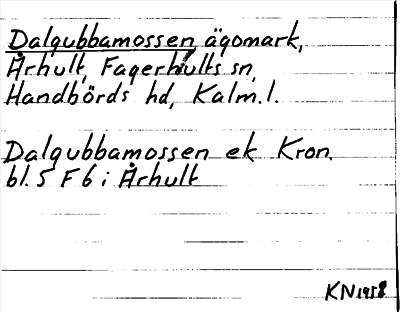 Dalgubbamossen ägomark,
Århult, Fagerhults sn,
Handbörds hd, Kalm.l.
Dalgubbamossen ek Kron.
bl. 5 F 6 i Århult
KN 1958